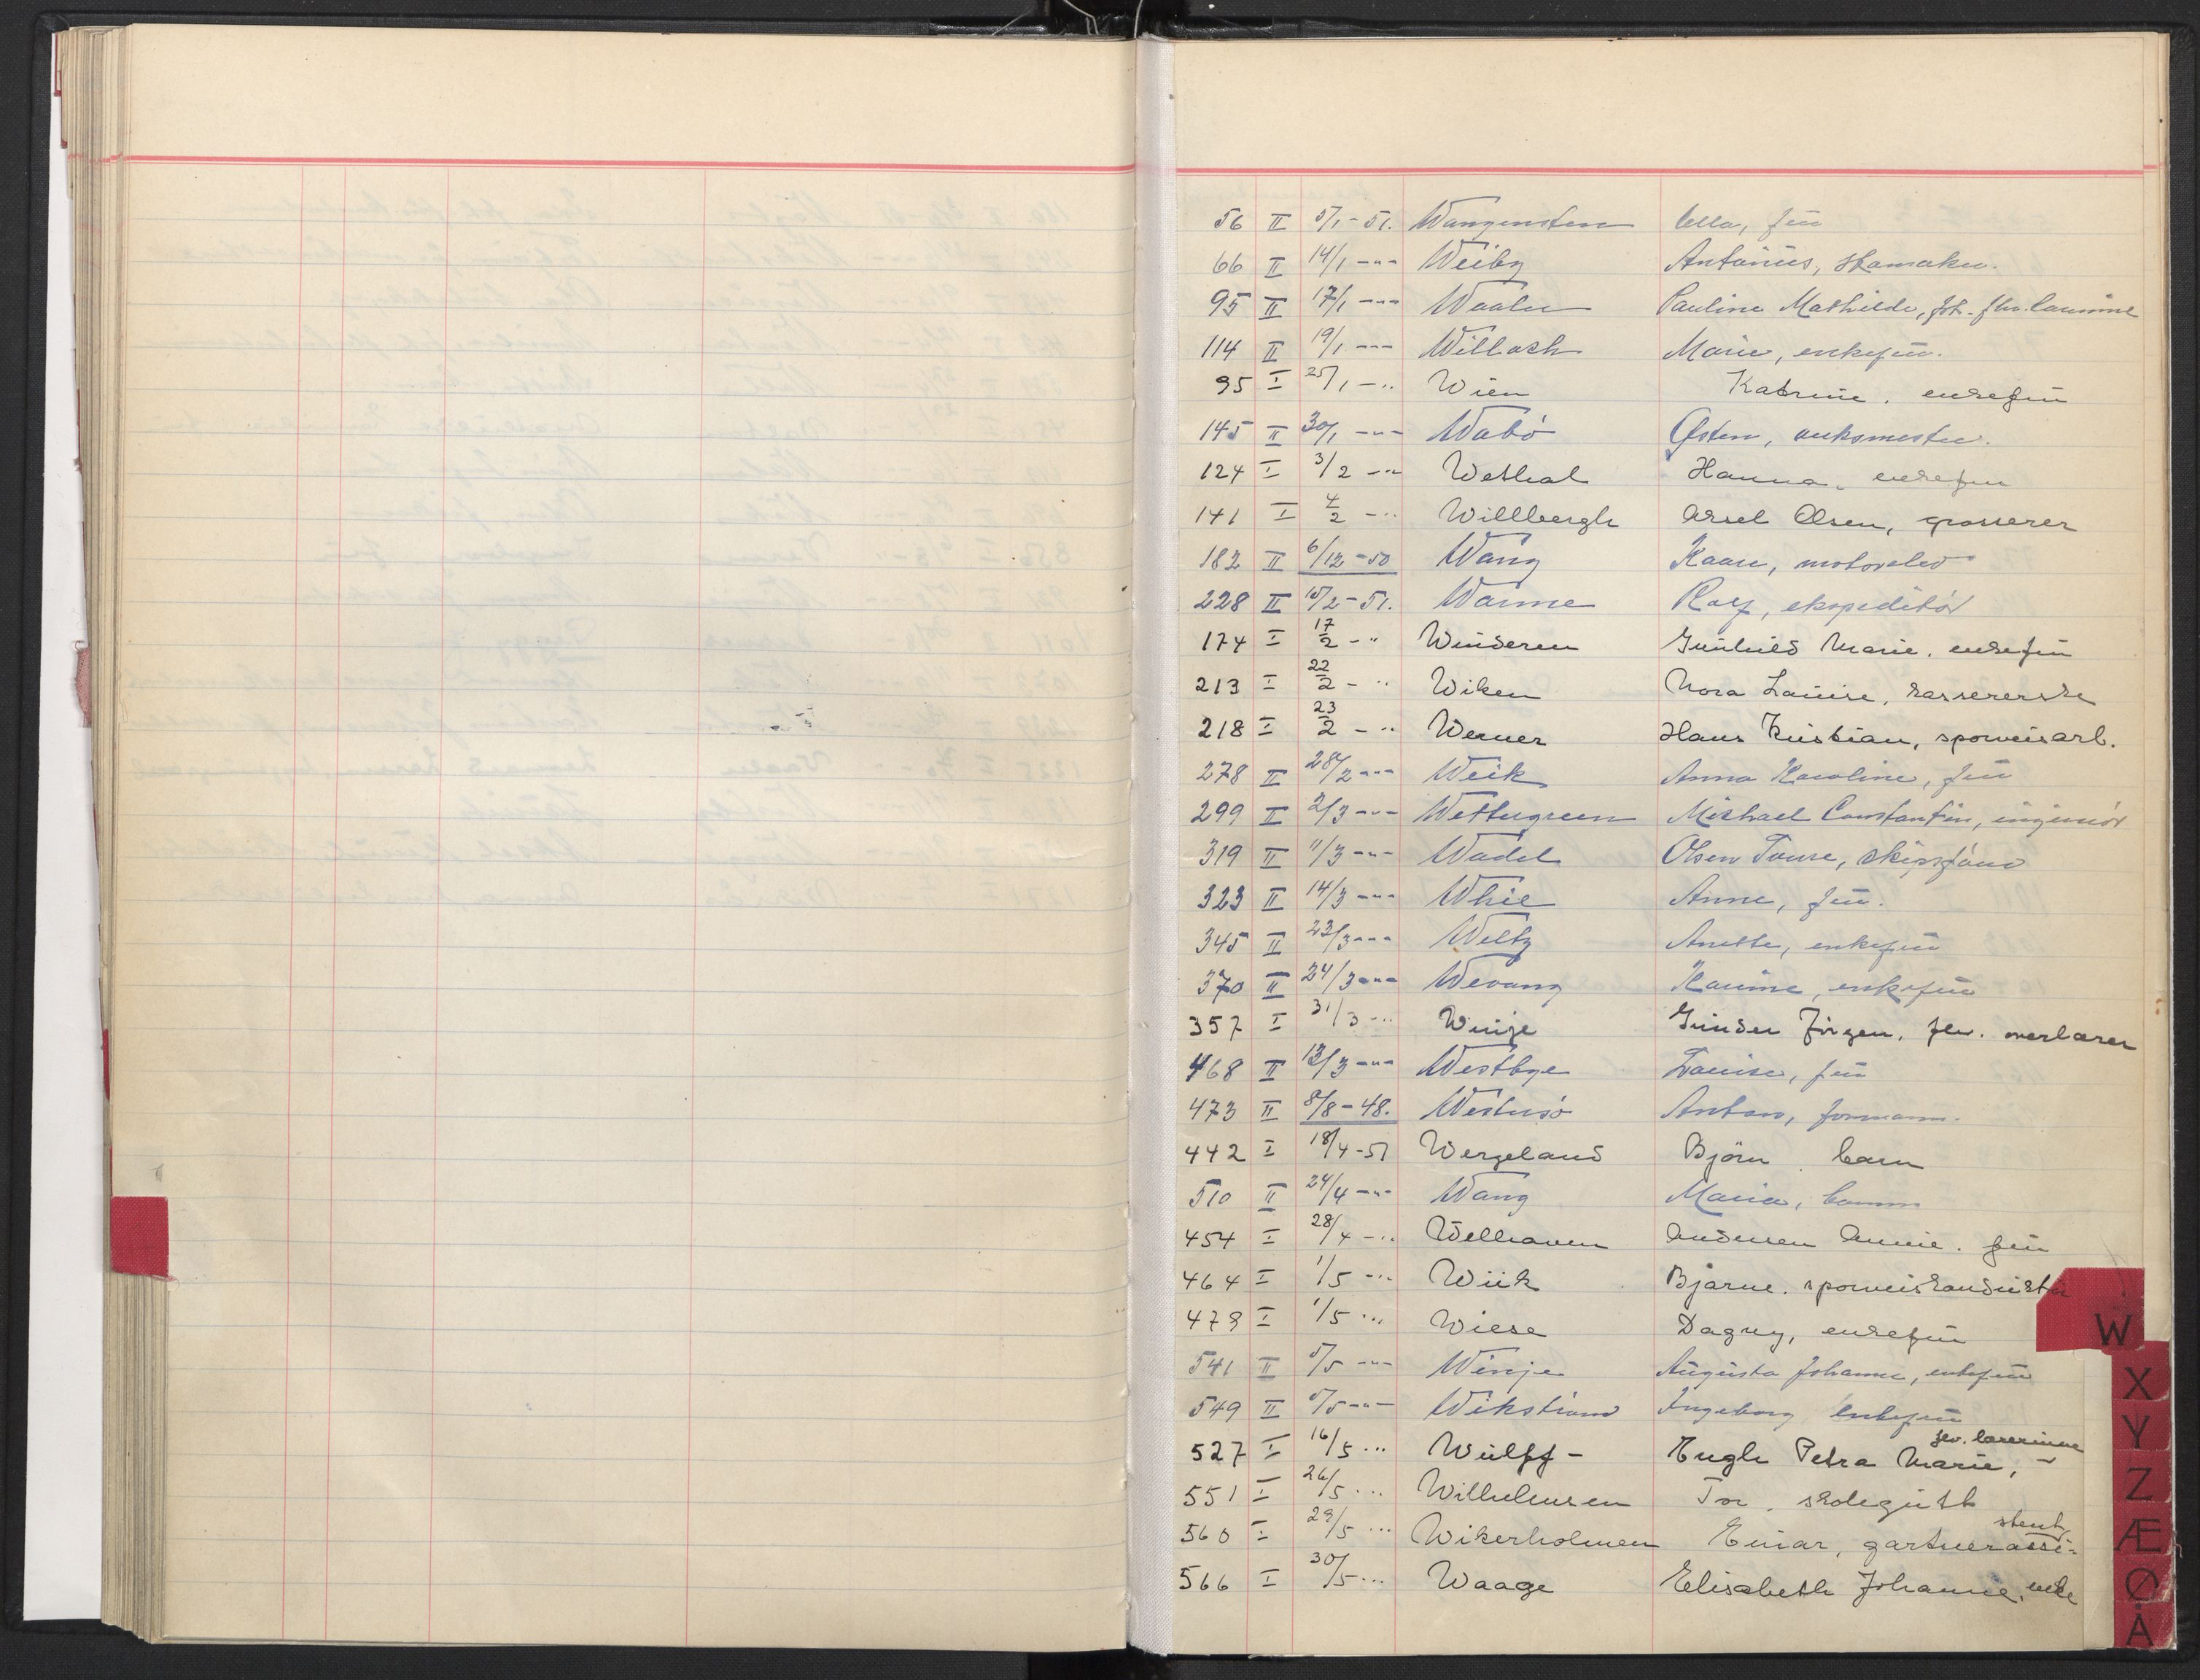 56 II 5/1-51. Wangensten Ella, frü
66 II 14/1 -"- Weiby Antonius, skomaker.
95 II 17/1 -"- Waaler Pauline Mathilde, fhv. lærerinne
114 II 19/1 -"- Willoch Marie, enkefrü.
95 I 25/1 -" Wien Katrine, enkefrü
145 II 30/1 -"- Wabö Østen, verksmester.
124 I 3/2 -" Wethal Hanna, enkefrü
141 I 4/2 -" Willbergh Aksel Olsen, grosserer
182 II 6/12-50 Wang Kaare, motorelev
228 II 15/2-51. Warme Rolf, ekspeditör
174 I 17/2 -" Winderen Günhild Marie, enkefrü
213 I 22/2 -" Wiken Nora Louise, kassererske
218 I 23/2 -" Werner Hans Kristian, sporveisarb.
278 II 28/2 -"- Weik Anna Karoline, frü
299 II 2/3 -"- Wettergreen Michael Constantin, ingeniör
319 II 11/3 -"- Wadel Olsen Toure, skipsförer
323 II 14/3 -"- Whil Anne, frü.
345 II 23/3 -"- Weltz Anette, enkefrü
370 II 24/3 -"- Wevang Karine, enkefrü
357 I 31/3 -" Winje Günder Jörgen, fhv. overlærer
468 II 13/3 -"- Westbye Louise, frü
473 II 8/8-48. Westersö Anton, formann.
442 I 18/4-51 Wergeland Björn, barn
510 II 24/4 -"- Wang Maria,
454 I 28/4 -" Welhaven Andersen Annie, frü
464 I 1/5 -" Wiik Bjarne, sporveiskondüktör
479 I 1/5 -" Wiese Dagny, enkefrü
541 II 5/5 -"- Winje Aügüsta Johanne, enkefrü
549 II 5/5 -"- Wikström Ingeborg enkefrü
527 I 16/5 -" Wülff- Engh Petra Marie, fhv. lærerinne
551 I 26/5 -" Wilhelmsen Tor, skolegütt
560 I 29/5 -" Wikerholmen Einar, gartnerassi- stent
566 I 30/5 -" Waage Elisabeth Johanne, enke
W
X
Y
Z
Æ
Ø
Å